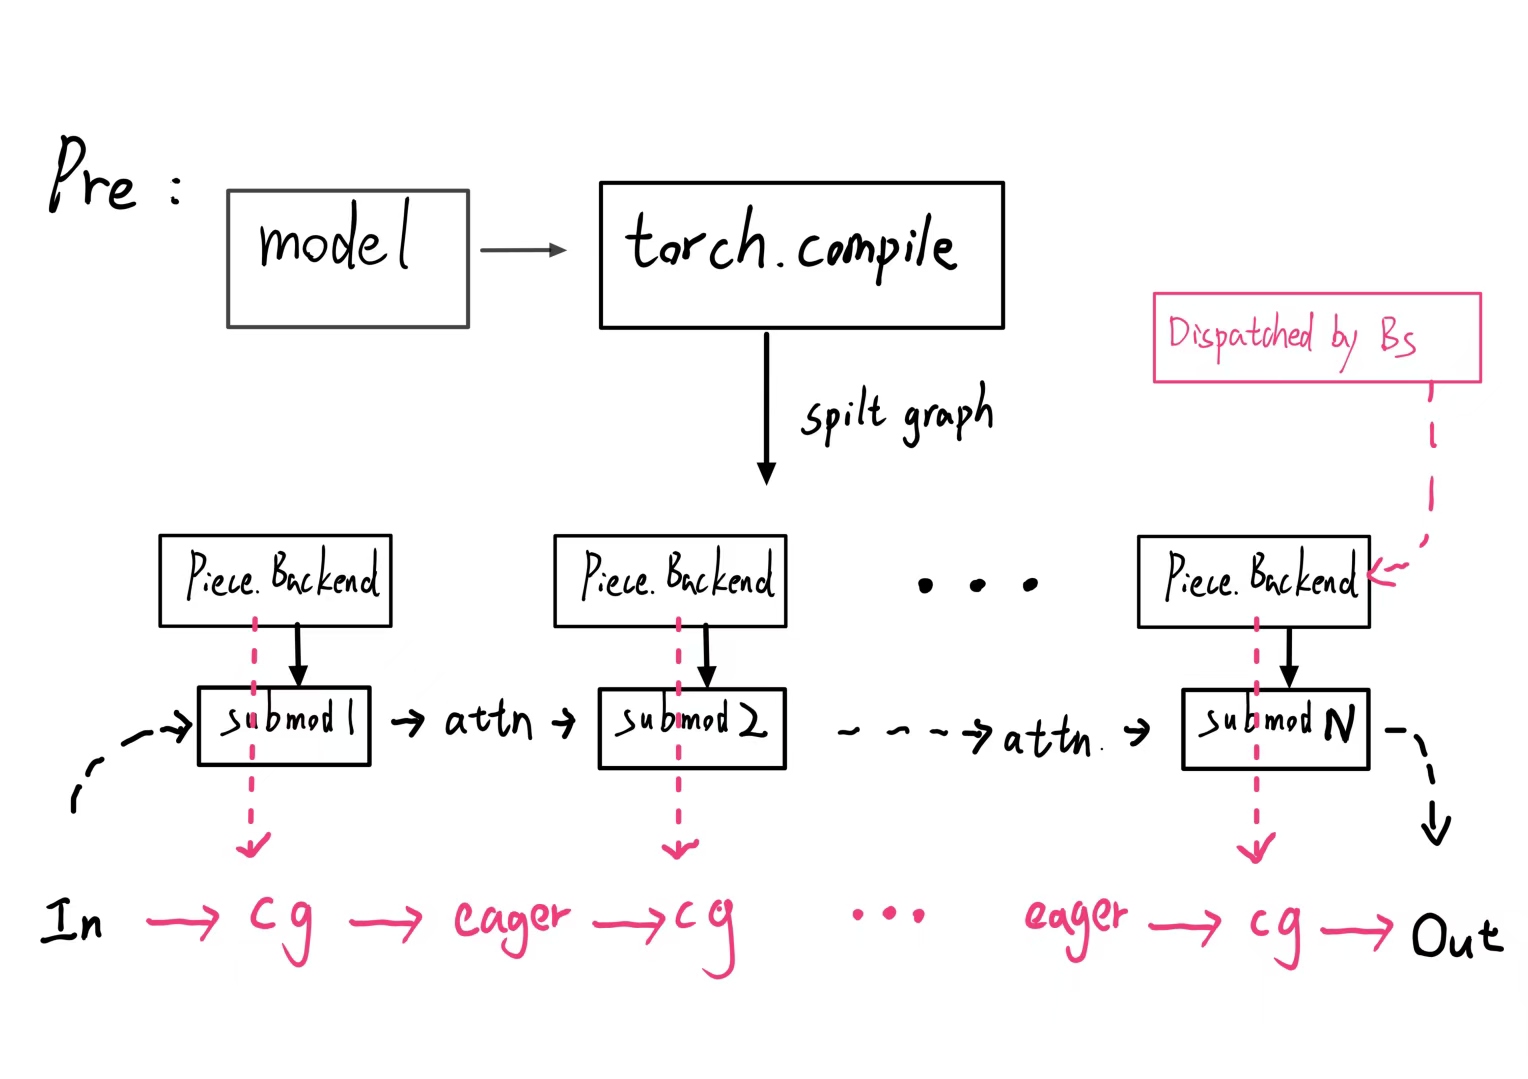 Pre :
model
torch.compile
Dispatched by Bs
spilt graph
Piece. Backend
Piece. Backend
Piece. Backend
submod 1
attn
submod 2
attn.
submod N
In
cg
eager
cg
eager
cg
Out